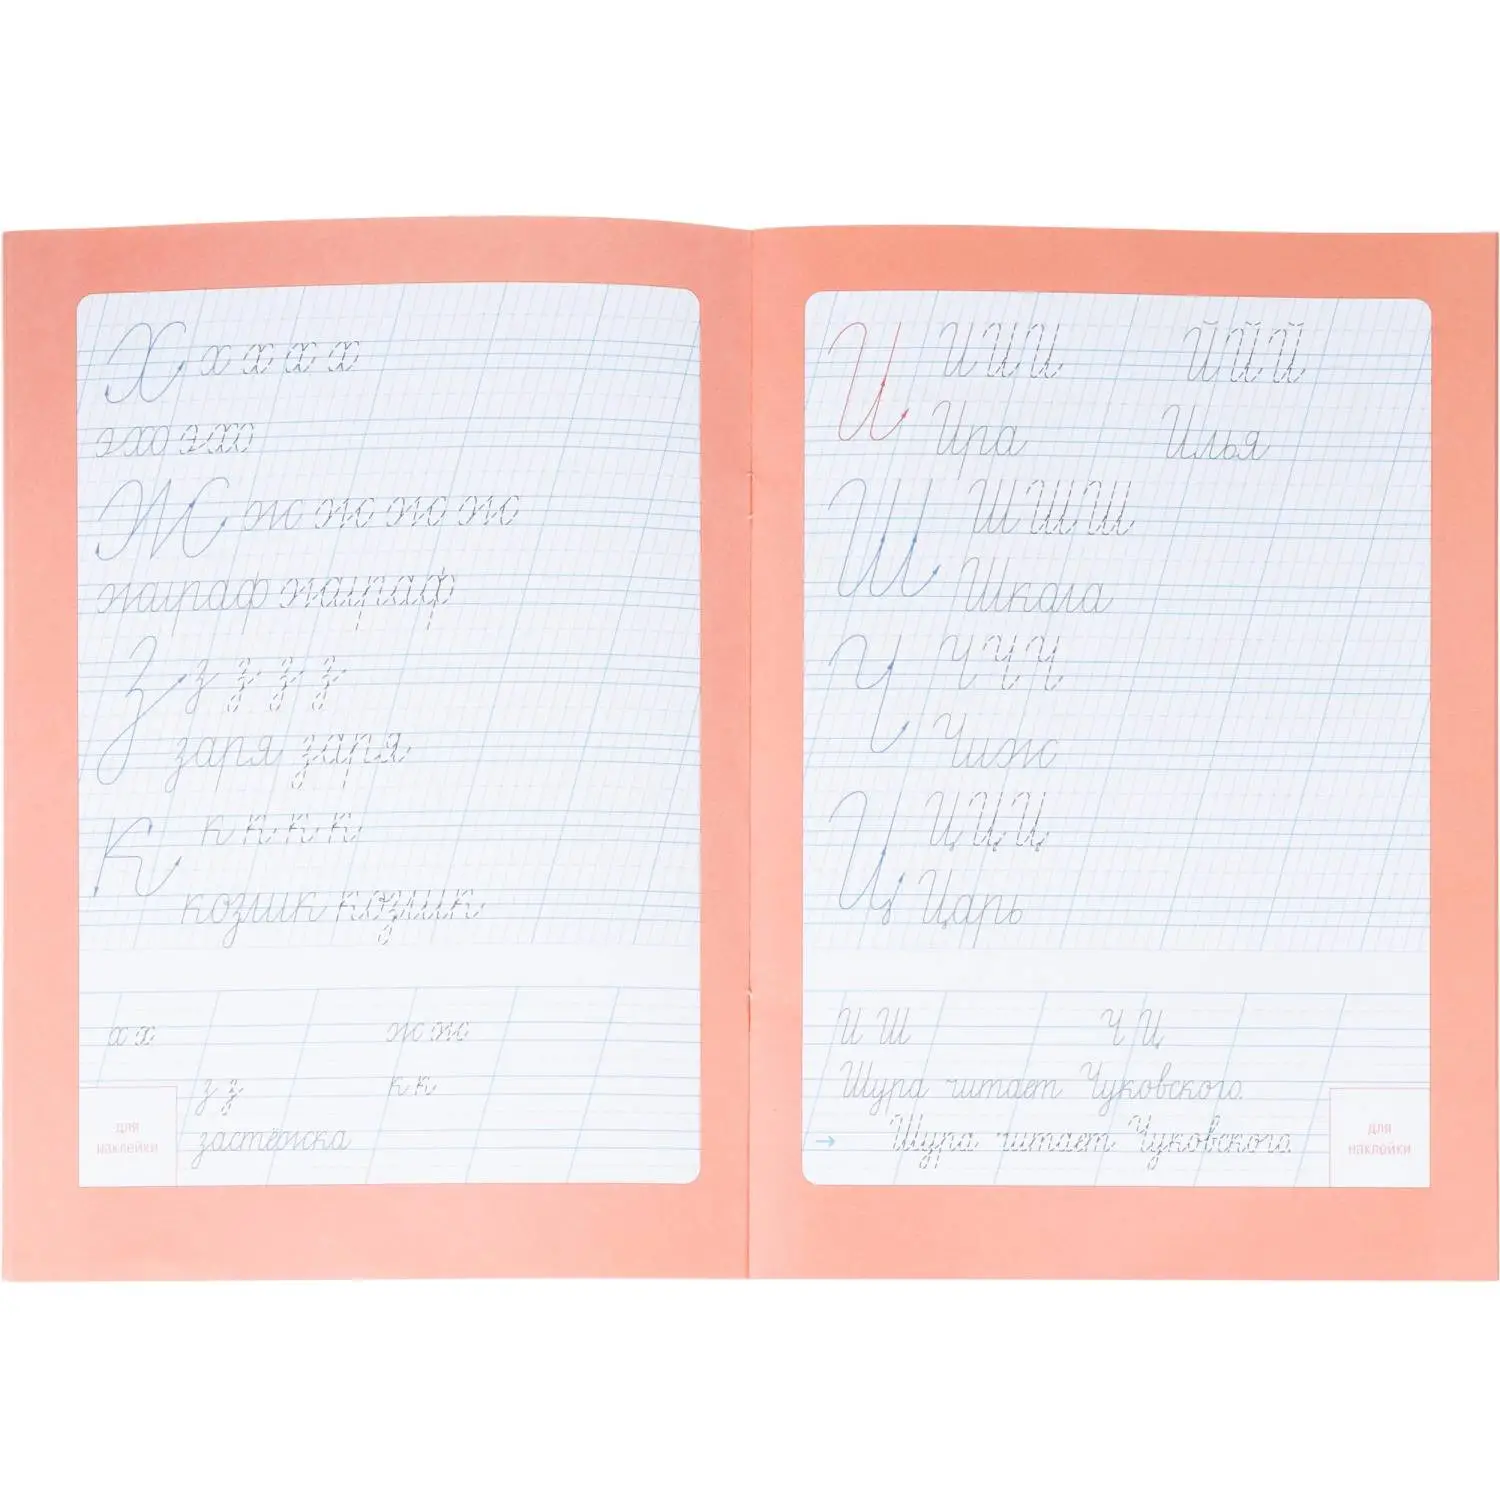 х х х х х
эхо эхо
ж ж ж ж ж
жираф жираф
з з з з з
заря заря
к к к к к
козлик козлик
х х ж ж
з з к к
застёжка
для
наклейки
И И И И Й Й Й
Ира Илья
Ш Ш Ш Ш
Школа
Ч Ч Ч Ч
Чиж
Ц Ц Ц Ц
Царь
И Ш Ч Ц
Шура читает Чуковского.
→ Шура читает Чуковского.
для
наклейки